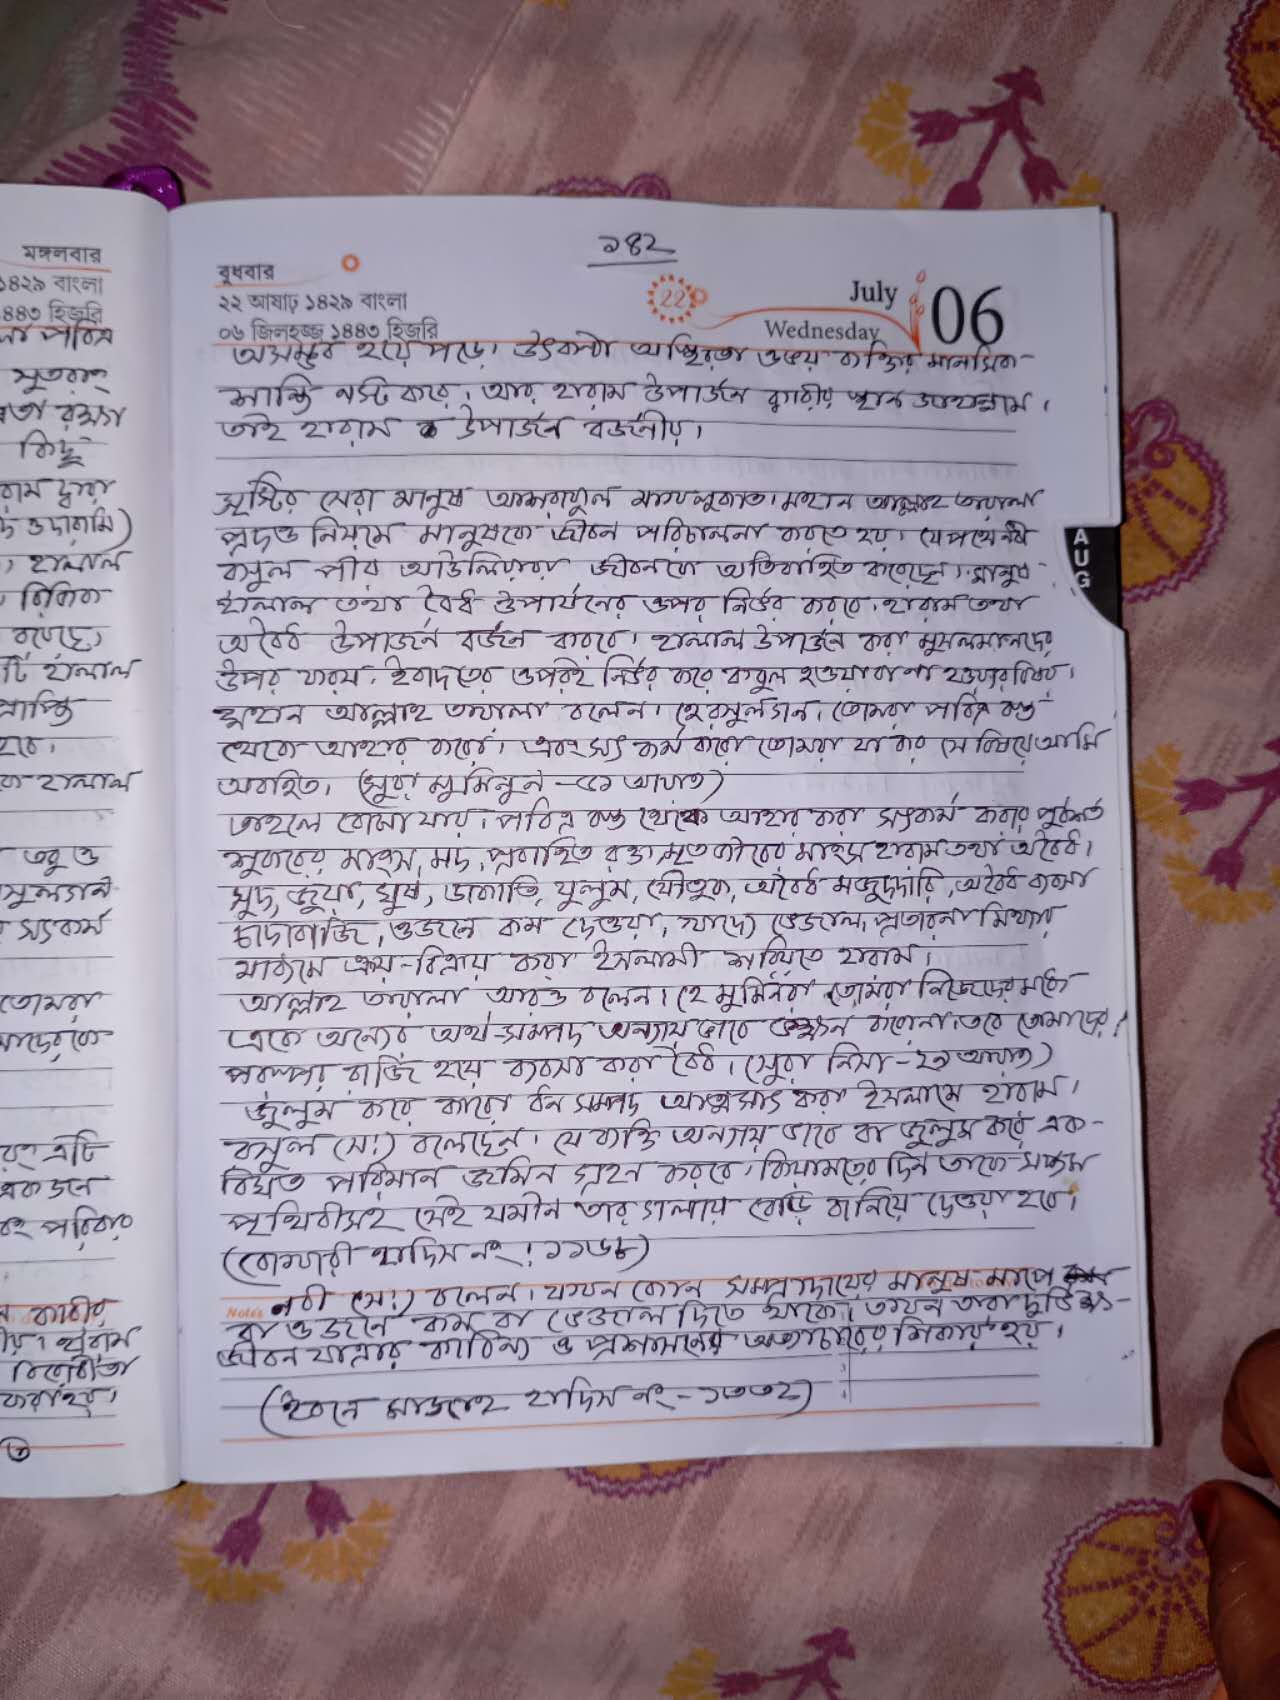 মঙ্গলবার
১৪২৯ বাংলা
৪৪৩ হিজরি
পবিত্র
সুতরাং
কিছু
হালাল
রয়েছে,
হালাল
হবে।
হালাল
তবু ও
সৎকর্ম
তোমরা
এটি
পরিবার
১৪২
বুধবার
২২ আষাঢ় ১৪২৯ বাংলা
০৬ জিলহজ্জ ১৪৪৩ হিজরি
22
July
Wednesday
06
AUG
অসম্ভব হয়ে পড়ে। উৎকন্ঠা অস্থিরতা উভয় ব্যক্তির মানসিক
শান্তি নস্ট করে। আর হারাম উপার্জন কারীর স্থান জাহান্নাম।
তাই হারাম উপার্জন বর্জনীয়।
সৃস্টির সেরা মানুষ আশরাফুল মাখলুকাত। মহান আল্লাহ তায়ালা
প্রদত্ত নিয়মে মানুষকে জীবন পরিচালনা করতে হয়। যে পথে নবী
রসুল পীর আউলিয়ারা জীবনকে অতিবাহিত করেছেন। মানুষ
হালাল তথা বৈধ উপার্যনের ওপর নির্ভর করবে। হারাম তথা
অবৈধ উপার্জন বর্জন করবে। হালাল উপার্জন করা মুসলমানদের
উপর ফরয। ইবাদতের ওপরই নির্ভর করে কবুল হওয়া বা না হওয়ার বিষয়।
মহান আল্লাহ তায়ালা বলেন। হে রসুলগন। তোমরা পবিত্র বস্তু
থেকে আহার করো। এবং সৎ কর্ম করো তোমরা যা কর সে বিষয়ে আমি
অবহিত। (সুরা মুমিনুন -৫১ আয়াত)
তাহলে বোঝা যায়। পবিত্র বস্তু থেকে আহার করা সৎকর্ম করার পূর্বশর্ত
শুকরের মাংস, মদ, প্রবাহিত রক্ত, মৃত জীবের মাংস হারাম তথা অবৈধ।
সুদ, জুয়া, ঘুষ, ডাকাতি, যুলুম, যৌতুক, অবৈধ মজুদদারি, অবৈধ ব্যবসা
চাদাবাজি, ওজনে কম দেওয়া, খাদ্যে ভেজাল, প্রতারনা মিথ্যার
মাধ্যমে ক্রয়-বিক্রয় করা ইসলামী শরিয়তে হারাম।
আল্লাহ তায়ালা আরও বলেন। হে মুমিনরা তোমরা নিজেদের মধ্যে
একে অন্যের অর্থ-সম্পদ অন্যায় ভাবে ভক্ষন করোনা। তবে তোমাদের
পরস্পর রাজি হয়ে ব্যবসা করা বৈধ। (সুরা নিসা - ২৯ আয়াত)
জুলুম করে কারো ধন সম্পদ আত্মসাৎ করা ইসলামে হারাম।
রসুল (সাঃ) বলেছেন। যে ব্যক্তি অন্যায় ভাবে বা জুলুম করে এক-
বিঘত পরিমান জমিন গ্রহন করবে। কিয়ামতের দিন তাকে সপ্তম
পৃথিবীসহ সেই যমীন তার গলায় বেড়ি বানিয়ে দেওয়া হবে।
(বোখারী হাদিস নং: ১১৬৮)
Notes
নবী (সাঃ) বলেন। যখন কোন সম্প্রদায়ের মানুষ মাপে
বা ওজনে কম বা ভেজাল দিতে থাকে। তখন তারা দুর্ভিক্ষ-
জীবন যাত্রার কাঠিন্য ও প্রশাসনের অত্যাচারের শিকার হয়।
(ইবনে মাজাহ হাদিস নং - ১৩৩২)